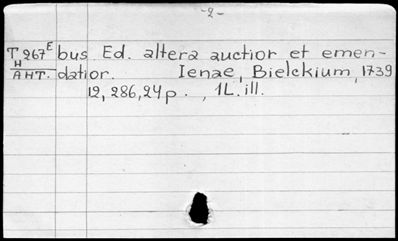 -2-
TH267E bus Ed. altera auctior et emen-
AHT. datior. Ienae, Bielckium, 1739
12, 286, 24 p., 1 L. ill.